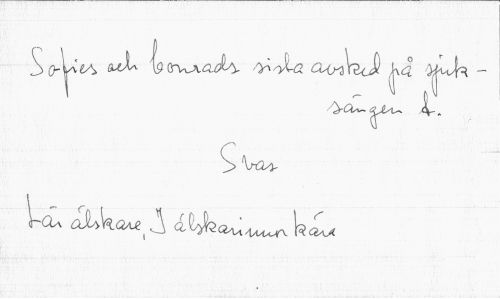 Sofies och Conrads sista avsked på sjuk-
sängen &.
Svas
Lär älskare, I älskarinnor kära